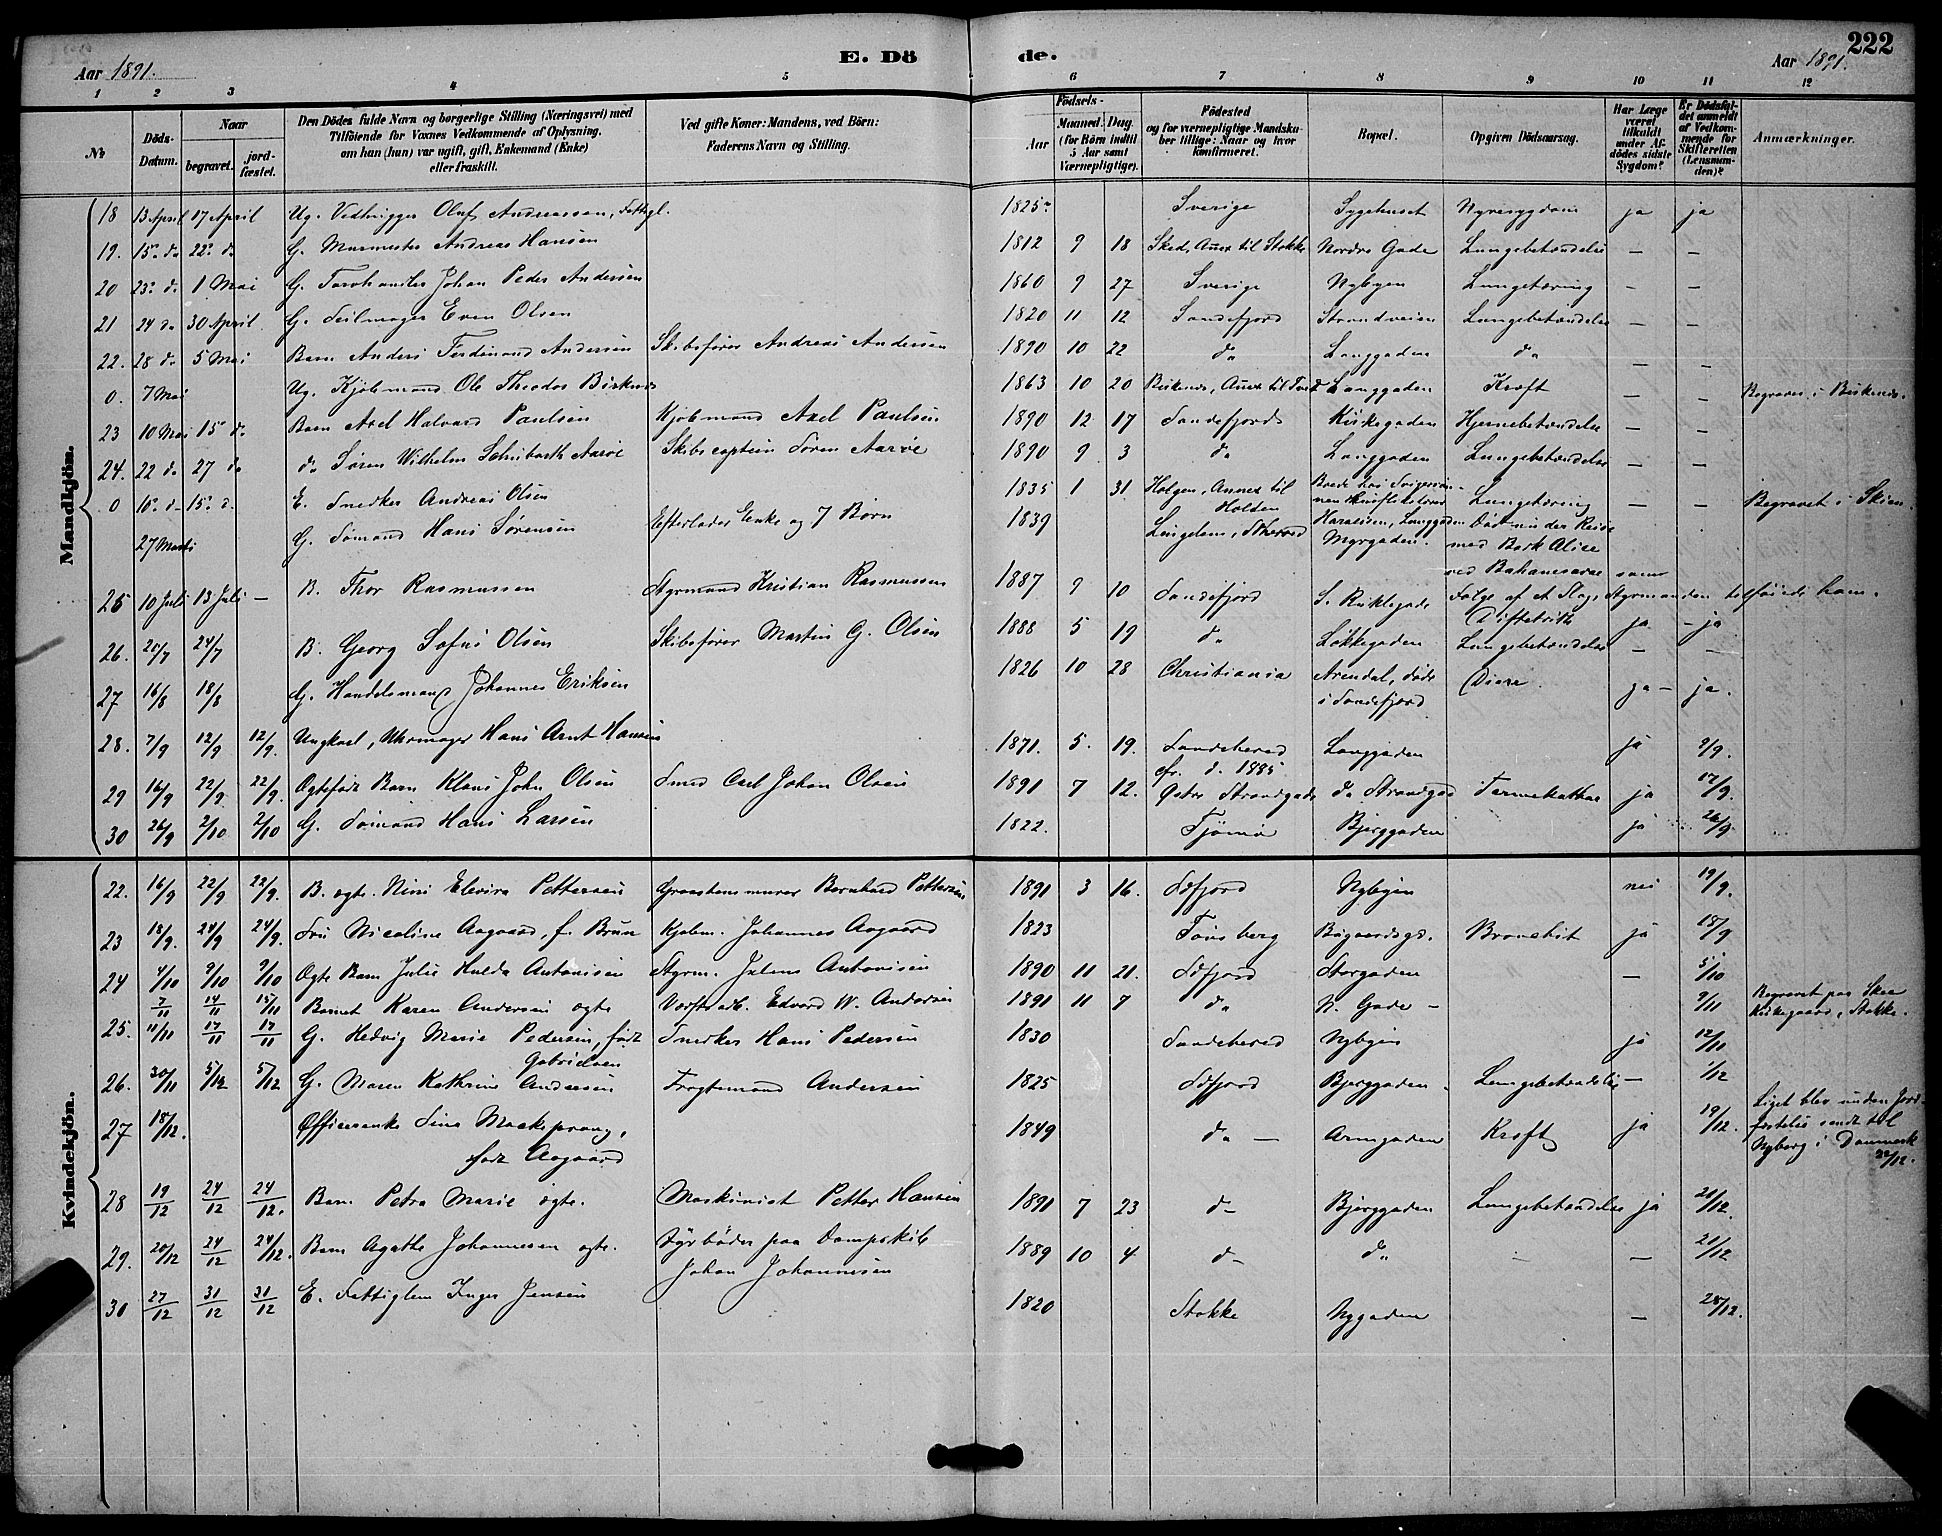 222
Aar 1891. E. Dö de. Aar 1891.
1 2 3 4 5 6 7 8 9 10 11 12
No
Döds-Datum.
Naar
begravet.
jord-fæstet.
Den Dödes fulde Navn og borgerlige Stilling (Næringsvei) med
Tilföiende for Voxnes Vedkommende af Oplysning,
om han (hun) var ugift, gift, Enkemand (Enke)
eller fraskilt.
Ved gifte Koner: Mandens, ved Börn:
Faderens Navn og Stilling.
Födsels-
Aar
Maaned. Dag.
(for Börn indtil
5 Aar samt
Værnepligtige).
Födested
og for værnepligtige Mandska-
ber tillige: Naar og hvor
konfirmeret.
Bopæl.
Opgiven Dödsaarsag.
Har Læge
været
tilkaldt
under Af-
dödes sidste
Sygdom?
Er Dödsfal-
det anmeldt
af Vedkom-
mende for
Skifteretten
(Lensman-
den)?
Anmærkninger.
Mandkjön.
18 13 April 17 April Ug. Vedhugger Oluf Andreassen, Fattigl. 1825 Sverige Sygehuset Nyresygdom ja ja
19. 15 do 22 do G. Murmester Andreas Hansen 1812 9 18 Sked, Anex til Stokke Nordre Gade Lungebetændelse — —
20 23 do 1 Mai G. Johan Peder Andersen 1860 9 27 Sverige Nybyen Lungetæring — —
21 24 do 30 April G. Seilmager Even Olsen 1820 11 12 Sandefjord Strandveien Lungebetændelse — —
22. 28 do 5 Mai Barn Anders Ferdinand Andersen Skibsfører Andreas Andersen 1890 10 22 do Langgaden do — —
0. 7 Mai Ug. Kjøbmand Ole Theodor Birknes 1863 10 20 Langgaden Kræft — — Begraves i
23 10 Mai 15 do Barn Axel Halvard Paulsen Kjøbmand Axel Paulsen 1890 12 17 Sandefjord Kirkegaden Hjernebetændelse — —
24. 22 do 27 do do Søren Wilhelm Schubarth Aarøe Skibscaptein Søren Aarøe 1890 9 3 do Langgaden Lungebetændelse — —
0 10 do 15 do E. Snedker Andreas Olsen 1835 1 31 Holgen, Annex til Holden Boede hos Svigersøn- Langgaden Lungetæring — — Begravet i Skien.
27 Marts G. Sømand Hans Sørensen Efterlader Enke og 7 Børn 1839 Myrgaden. Død under Reise
med Bark Alice
ved
25 10 Juli 13 Juli — B. Thor Rasmussen Styrmand Kristian Rasmussen 1887 9 10 Sandefjord Følge af et Slag, Styrmanden tilføiede ham.
Difteritis ja - ja
26. 20/7 24/7 B. Georg Sofus Olsen Skibsfører Martin G. Olsen 1888 5 19 do Løkkegaden Lungebetændelse — —
27 16/8 18/8 G. Handelsmand Johannes Eriksen 1826 10 28 Christiania Arendal, døde
i Sandefjord ja — ja.
28. 7/9 12/9 12/9. Ungkarl, Uhrmager Hans Arnt Hansen 1871. 5. 19. Sandeherred Langgaden ja 9/9.
cfr. d. 1885
29 16/9 22/9 22/9. Ægtefødt Barn Klaus John Olsen Smed Carl Johan Olsen 1891 7 12. Østre Strandgade do Strandgad Tarmekathar ja 17/9.
30 26/9 2/10 2/10 G. Sømand Hans Larsen 1822. Tjømø Bjerggaden ja 26/9.
Kvindekjön.
22. 16/9 22/9 22/9. B. ægte. Nini Elvira Pettersen Graastensmurer Bernhard Pettersen 1891 3 16. Sdfjord Nybyen nei 19/9.
23 18/9. 24/9 24/9. Fru Nicoline Aagaard, f. Bruun Kjøbm. Johannes Aagaard 1823 Tønsberg Bugaardsgd. Bronchit ja 18/9
24 4/10 9/10 9/10 Ægte Barn Julie Hulda Antonisen Styrm. Julius Antonisen 1890 11 21. Sdfjord Storgaden — 5/10
7/11 14/11 15/11 Barnet Karen Andersen ægte Værftsarb. Edvard W. Andersen 1891 11 7 do N. Gade — 9/11 Begravet paa Skee
Kirkegaard, Stokke.
25. 11/11 17/11 17/11 G. Hedvig Marie Pedersen, født
Gabrielsen Snedker Hans Pedersen 1830 Sandeherred Nybyen ja 12/11
26. 30/11 5/12 5/12 G. Maren Kathrine Andersen Fragtemand Andersen 1825 Sdfjord Bjerggaden Lungebetændelse — 1/12
27 18/12. Officerenke Sina Mackeprang,
født Aagaard 1849 do — Kræft ja 19/12. Liget blev uden Jord-
fæstelse sendt til
Nyborg i Danmark
22/12.
28 19/12 24/12 24/12. Barn Petra Marie ægte. Maskinist Petter Hansen 1891 7 23 do Bjerggaden Lungebetændelse ja 20/12.
29. 20/12 24/12 24/12. Barn Agathe Johannesen ægte. Fyrbøder paa Dampskib
Johan Johannesen 1889 10 4 do do — — 21/12
30 27/12 31/12 31/12 E. Fattiglem Inger Jensen 1820 Stokke Nygaden — 28/12.